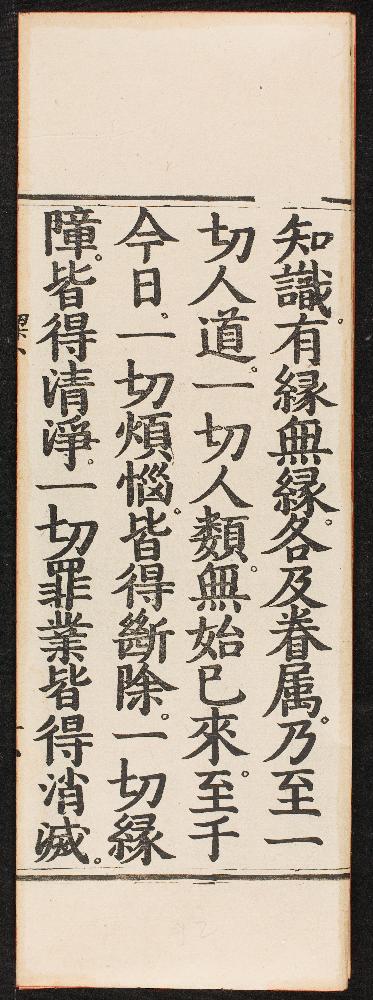 知識。有縁無縁。各及眷属。乃至一
切人道。一切人類。無始已來。至于
今日。一切煩惱。皆得斷除。一切縁
障。皆得清淨。一切罪業皆得消滅。